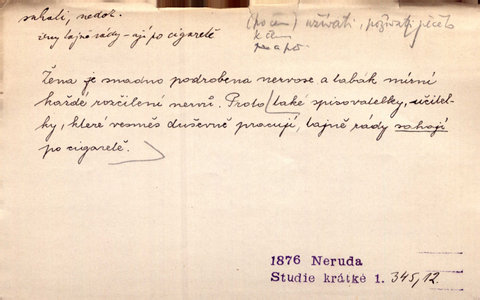 sahati, nedok.
ženy tajně rády -ají po cigaretě
(po čem) užívati, požívati něčeho
k čemu
Žena je snadno podrobena nervose a tabák mírní
každé rozčilení nervů. Proto také spisovatelky, učitel-
ky, které vesměs duševně pracují, tajně rády sahají
po cigaretě.
1876 Neruda
Studie krátké 1. 345,12